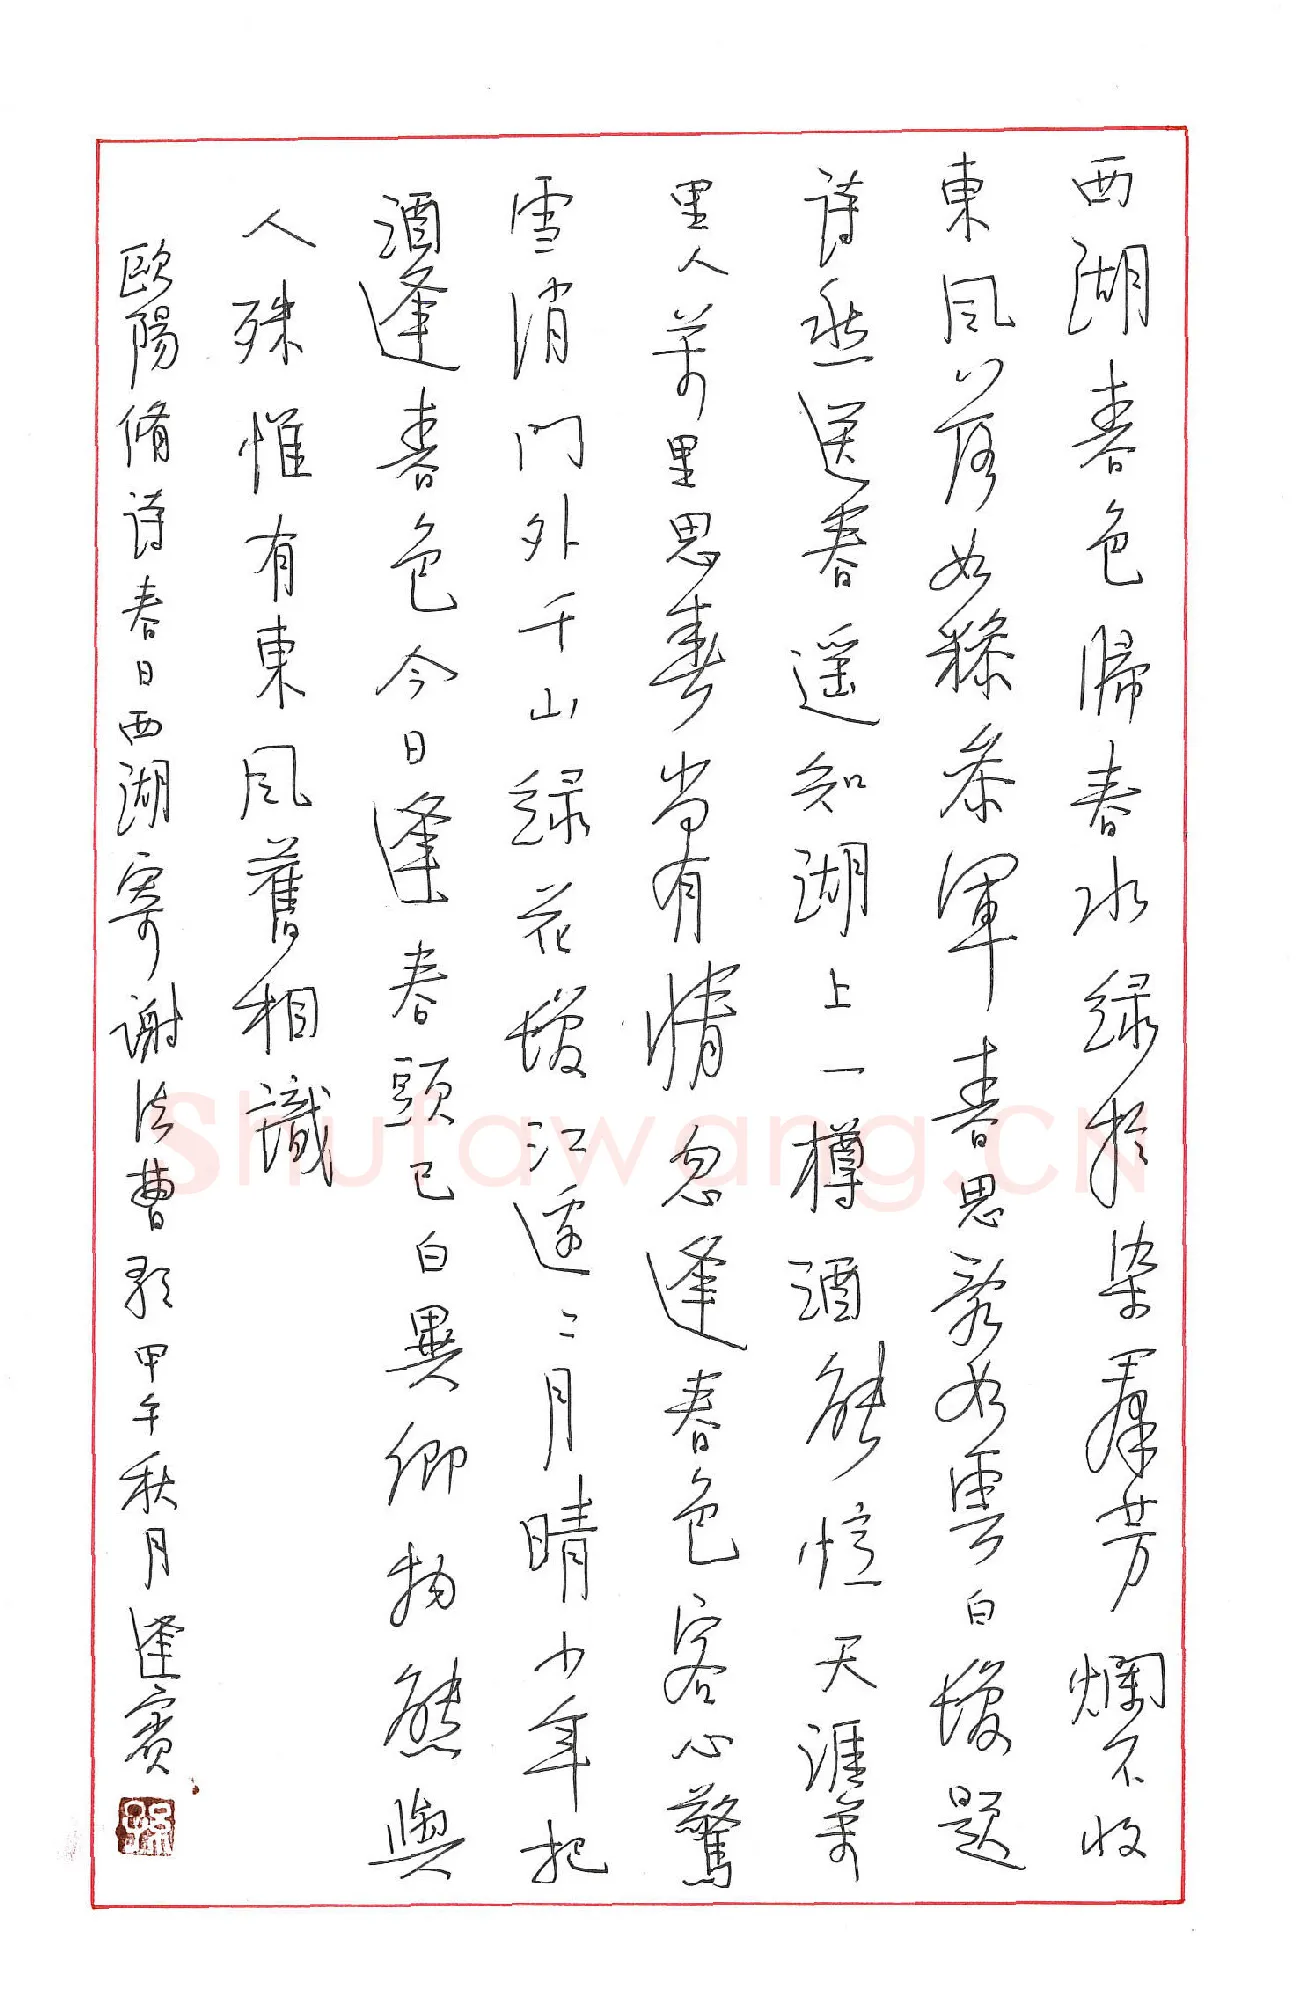 西湖春色歸春水緑於染羣芳爛不收
東風落如糝参軍春思亂如雲白髮題
詩愁送春遥知湖上一樽酒能憶天涯萬
里人萬里思春尚有情忽逢春色客心驚
雪消門外千山緑花發江邊二月晴少年把
酒逢春色今日逢春頭已白異鄉物態與
人殊惟有東風舊相識
歐陽脩詩春日西湖寄謝法曹歌甲午秋月逢賓
Shufawang.CN